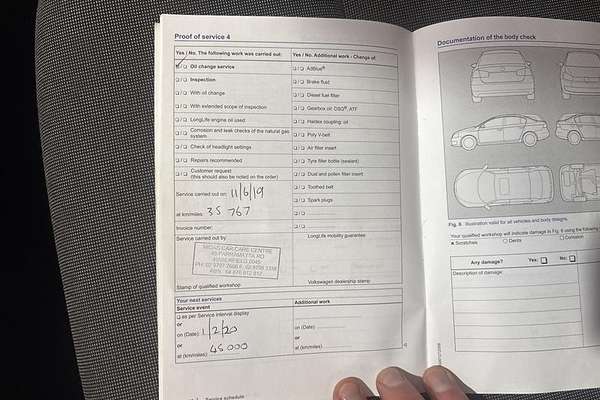 Proof of service 4
Yes / No. The following work was carried out:
☑/☐ Oil change service
☐/☐ Inspection
☐/☐ With oil change
☐/☐ With extended scope of inspection
☐/☐ LongLife engine oil used
☐/☐ Corrosion and leak checks of the natural gas
system
☐/☐ Check of headlight settings
☐/☐ Repairs recommended
☐/☐ Customer request
(this should also be noted on the order)
Service carried out on: 11/6/19
at km/miles: 35 767
Invoice number:
Service carried out by
CAR CARE CENTRE
PARRAMATTA RD
Stamp of qualified workshop
Yes / No. Additional work - Change of:
☐/☐ AdBlue®
☐/☐ Brake fluid
☐/☐ Diesel fuel filter
☐/☐ Gearbox oil: DSG®, ATF
☐/☐ Haldex coupling: oil
☐/☐ Poly V-belt
☐/☐ Air filter insert
☐/☐ Tyre filler bottle (sealant)
☐/☐ Dust and pollen filter insert
☐/☐ Toothed belt
☐/☐ Spark plugs
☐/☐
☐/☐
LongLife mobility guarantee
Volkswagen dealership stamp
Your next services
Service event
☐ as per Service interval display
or
on (Date): 1/2/20
or
at (km/miles): 45000
Additional work
on (Date):
or
at (km/miles):
Service schedule
Documentation of the body check
Fig. 5 Illustration valid for all vehicles and body designs.
Your qualified workshop will indicate damage in Fig. 5 using the following
Scratches ○ Dents ☐ Corrosion
Any damage? Yes: ☐ No: ☐
Description of damage: